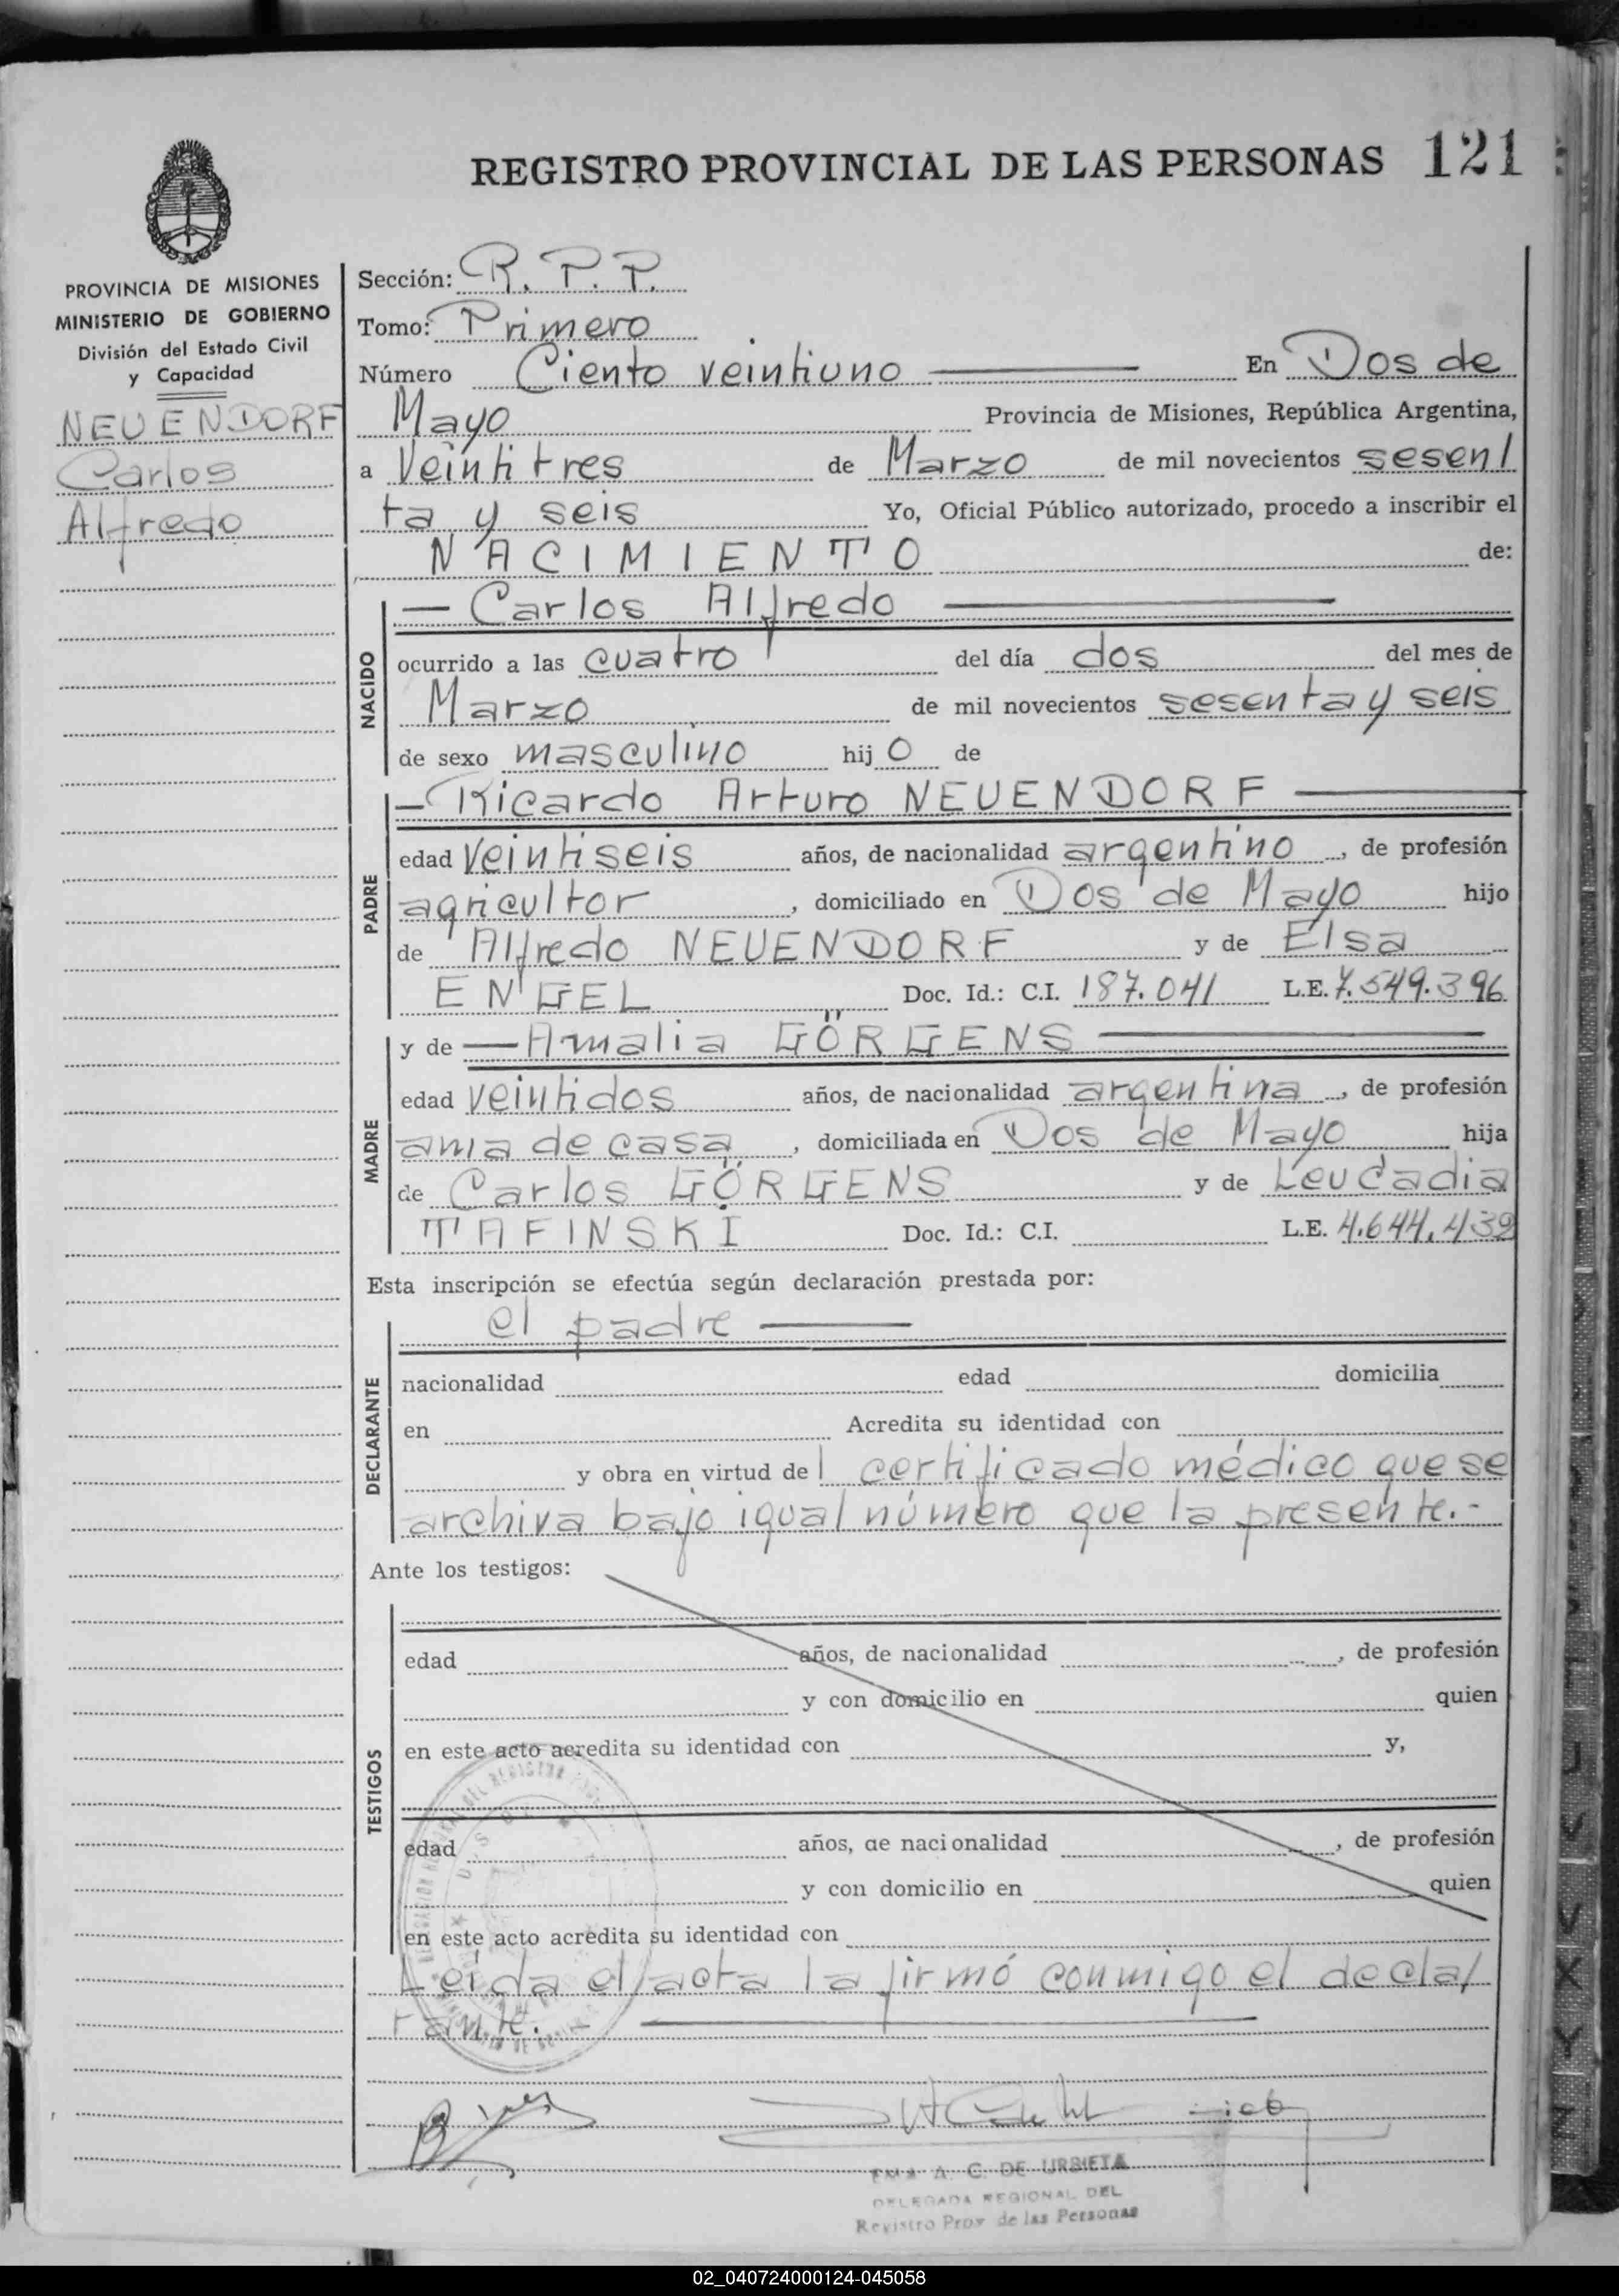 REGISTRO PROVINCIAL DE LAS PERSONAS 121
PROVINCIA DE MISIONES
MINISTERIO DE GOBIERNO
División del Estado Civil
y Capacidad
NEUENDORF
Carlos
Alfredo
Sección: R. P. P.
Tomo: Primero
Número Ciento veintiuno En Dos de
Mayo Provincia de Misiones, República Argentina,
a Veintitres de Marzo de mil novecientos sesen/
ta y seis Yo, Oficial Público autorizado, procedo a inscribir el
NACIMIENTO de:
NACIDO
— Carlos Alfredo —
ocurrido a las cuatro del día dos del mes de
Marzo de mil novecientos sesenta y seis
de sexo masculino hij o de
PADRE
— Ricardo Arturo NEUENDORF —
edad veintiseis años, de nacionalidad argentino, de profesión
agricultor, domiciliado en Dos de Mayo hijo
de Alfredo NEUENDORF y de Elsa
ENGEL Doc. Id.: C.I. 187.041 L.E. 7.549.396
MADRE
y de — Amalia GÖRGENS —
edad veintidos años, de nacionalidad argentina, de profesión
ama de casa, domiciliada en Dos de Mayo hija
de Carlos GÖRGENS y de Leucadia
TAFINSKI Doc. Id.: C.I. L.E. 4.644.439
Esta inscripción se efectúa según declaración prestada por:
DECLARANTE
el padre —
nacionalidad edad domicilia
en Acredita su identidad con
y obra en virtud del certificado médico que se
archiva bajo igual número que la presente.-
Ante los testigos:
TESTIGOS
edad años, de nacionalidad , de profesión
y con domicilio en quien
en este acto acredita su identidad con y,
edad años, de nacionalidad , de profesión
y con domicilio en quien
en este acto acredita su identidad con
Leída el acta la firmó conmigo el decla/
rante. —
A. C. DE URBIETA
DELEGADA REGIONAL DEL
Registro Prov de las Personas
02_040724000124-045058